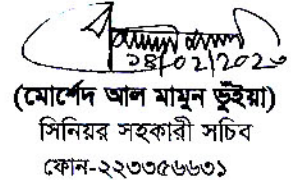 ১৪/০২/২০২৩
(মোর্শেদ আল মামুন ভুঁইয়া)
সিনিয়র সহকারী সচিব
ফোন-২২৩৩৫৬৬৩১